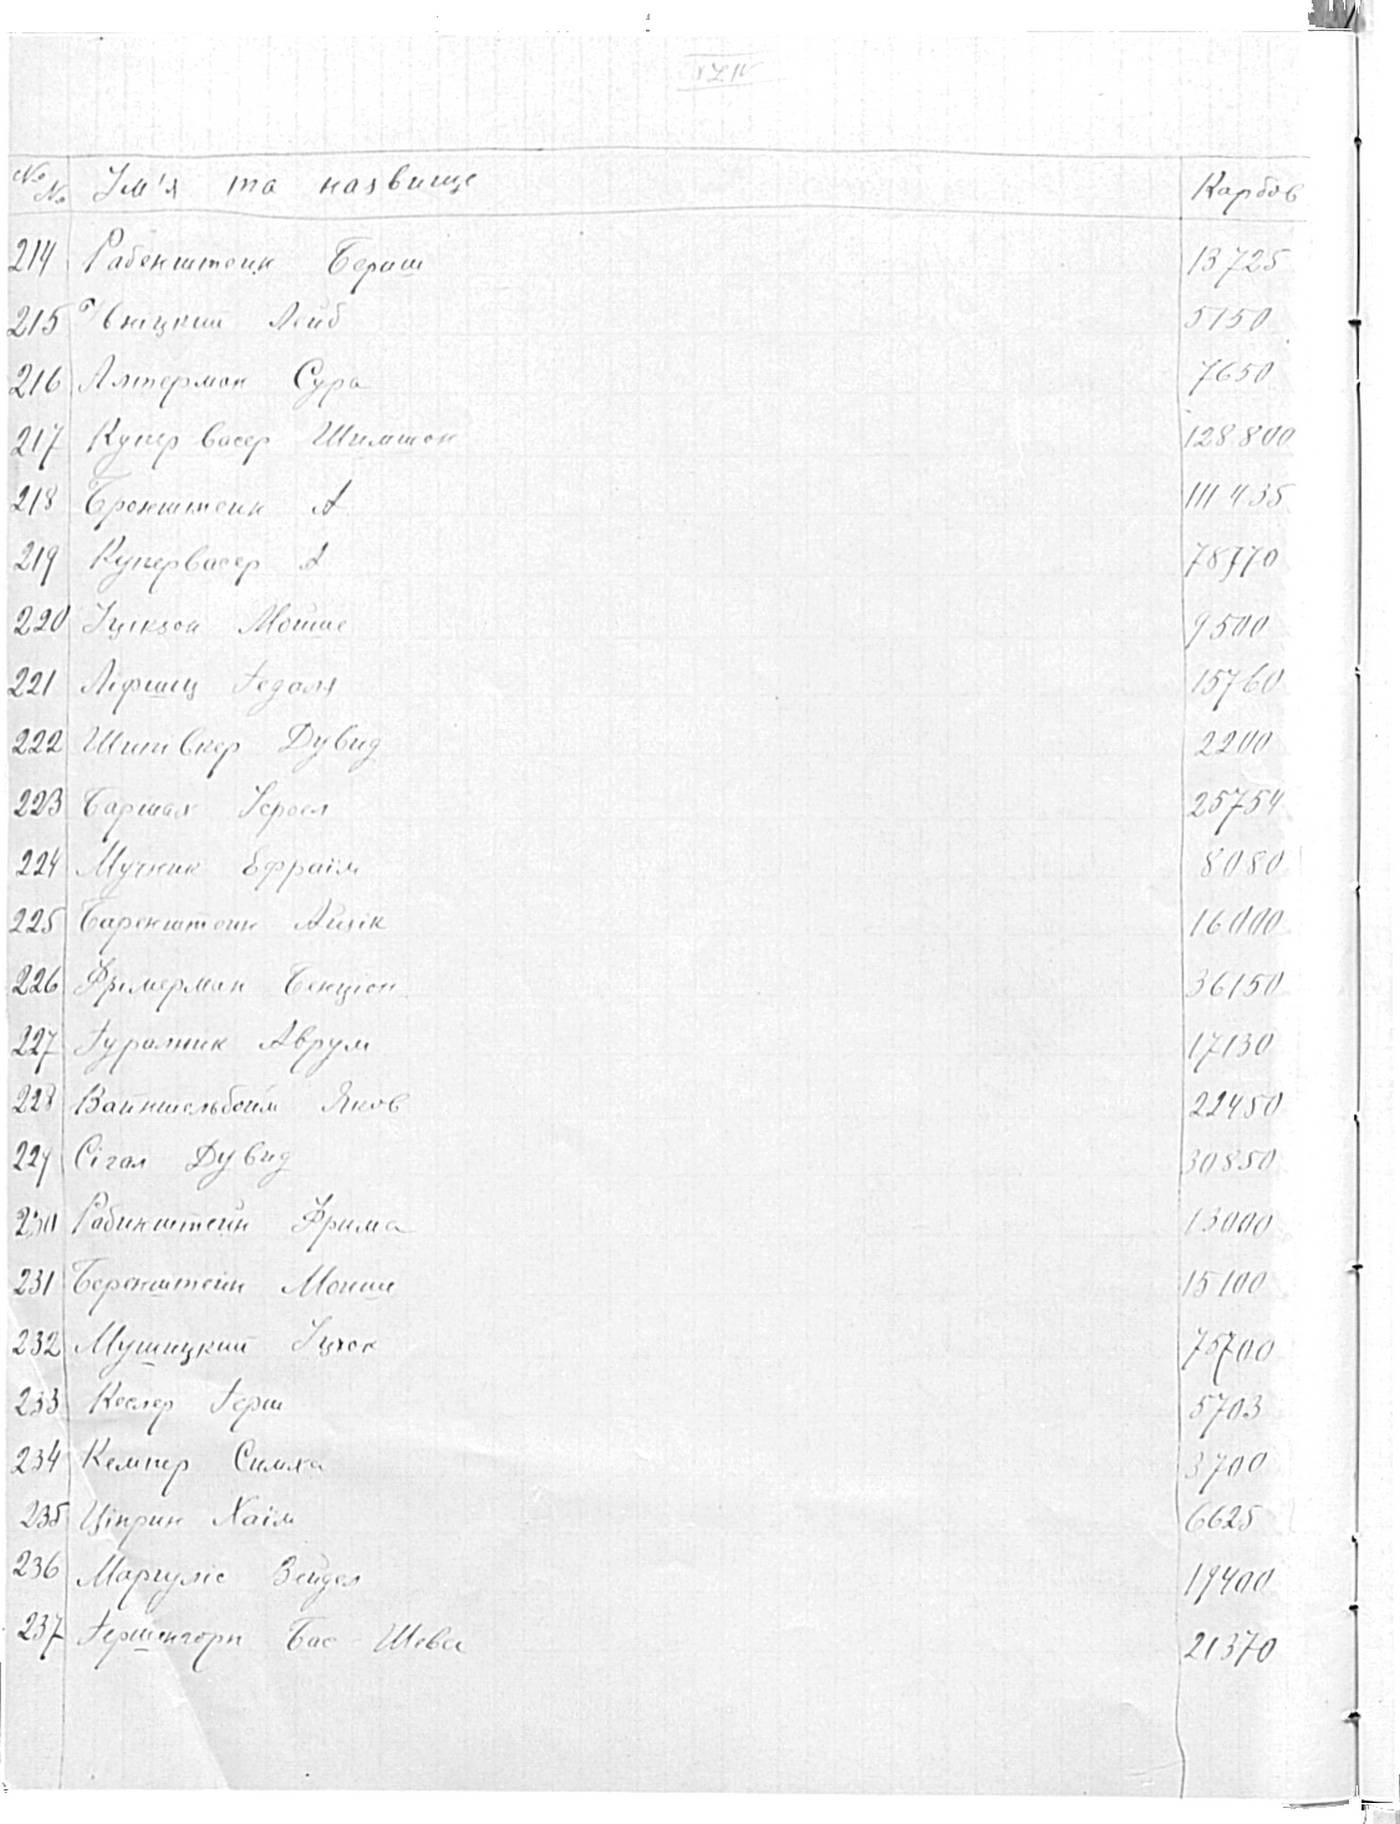 №№ Ім'я та назвище Карбов
214 Рабенштеин Бериш 13725
215 Лейб 5150
216 Алтерман Сура 7650
217 Купер васер Шимшон 128800
218 Бронштеин А 111435
219 Купервасер А 78770
220 Іцікзон Мойше 9500
221 Ліфшиц Гедаля 15760
222 Шпівкер Дувид 2200
223 Баршак Ісроел 25754
224 Мучник Ефраїм 8080
225 Баренштеин Айзік 16000
226 Фрімерман Бенціон 36150
227 Гуралник Аврум 17130
228 Вайншельбойм Яков 22450
229 Сігал Дувид 30850
230 Рабинштейн Фрима 13000
231 Беренштейн Моише 15100
232 Мушицкий Іцхок 75700
233 Кеслер Герш 5703
234 Кемпер Симха 3700
235 Ціприн Хаїм 6625
236 Маргуліс Зейдел 19400
237 Гершенгорн Бас-Шева 21370